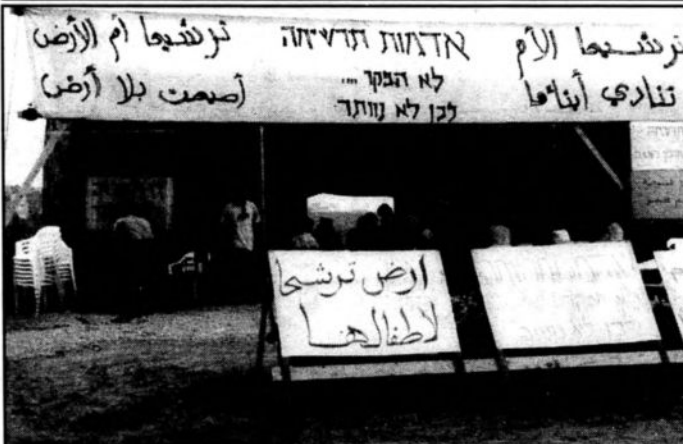 ترشيحا الأم
تنادي أبنائها
אדמות תרשיחה
לא הפקר ...
לכן לא נוותר
ترشيحا أم الأرض
أصبحت بلا أرض
ارض ترشيحا
لاطفالها